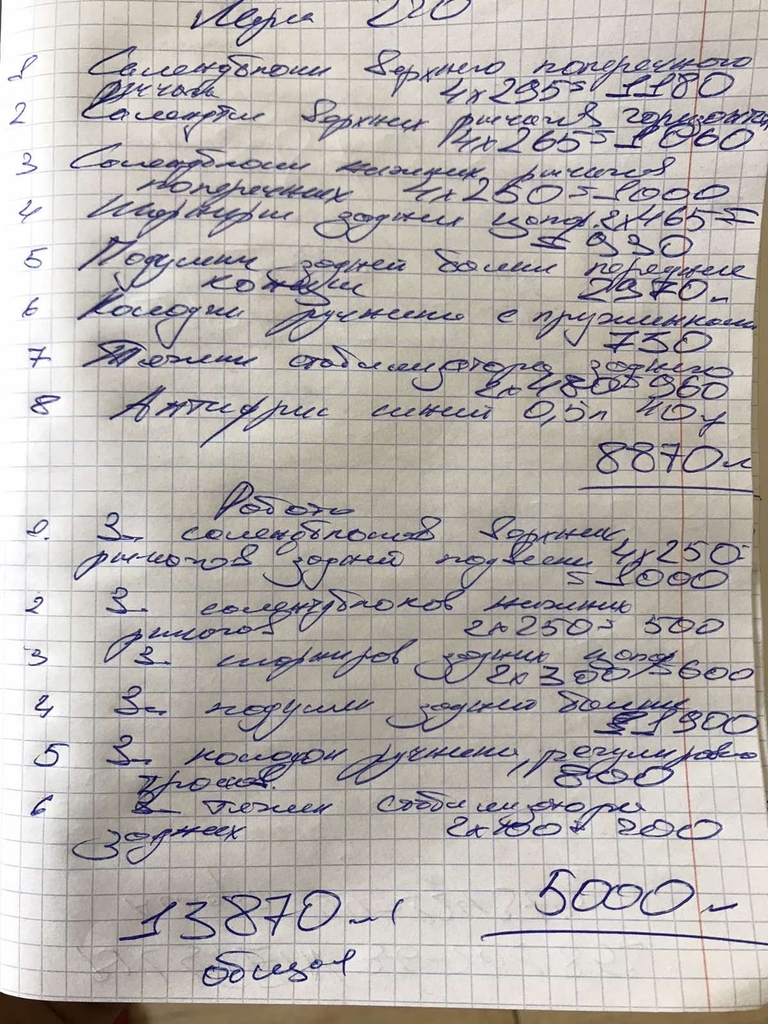 Мерс 220
1 Салендблоки верхнего поперечного
рычага 4х295=1180
2 Салендбл верхних рычагов горизонтал
4х265=1060
3 Салендблоки нижних рычагов
поперечних 4х250=1000
4 Шарниры задней цапф. 2х465=
=930
5 Подушки задней балки передние
2970
6 Колодки ручника с пружинками
730
7 Тяжки стабилизатора заднего
2х480=960
8 Антифриз синий 0,5л 40
8870
Работа
1. З- салендблоков верхних
рычагов задней подвески 4х250=
=1000
2 З- салендблоков нижних
рычагов 2х250= 500
3 З- шарниров задних цапф
2х300=600
4 З- подушек задней балки
1900
5 З- колодок ручника, регулировка
тросов. 800
6 З- тяжки стабилизатора
задних 2х100= 200
5000
13870
общая